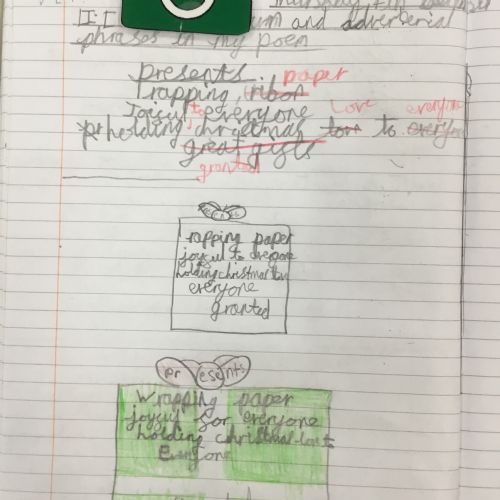 Thursday 4th
and adverbial
phrases in my poem
presents paper
rapping, ribon
Joyful to everyone Love everyone
holding christmas love to every
great gifts
granted
presents
rapping paper
joyful to everyone
holding christmas
everyone
granted
presents
Wrapping paper
joyful for everyone
holding christmas
Everyone